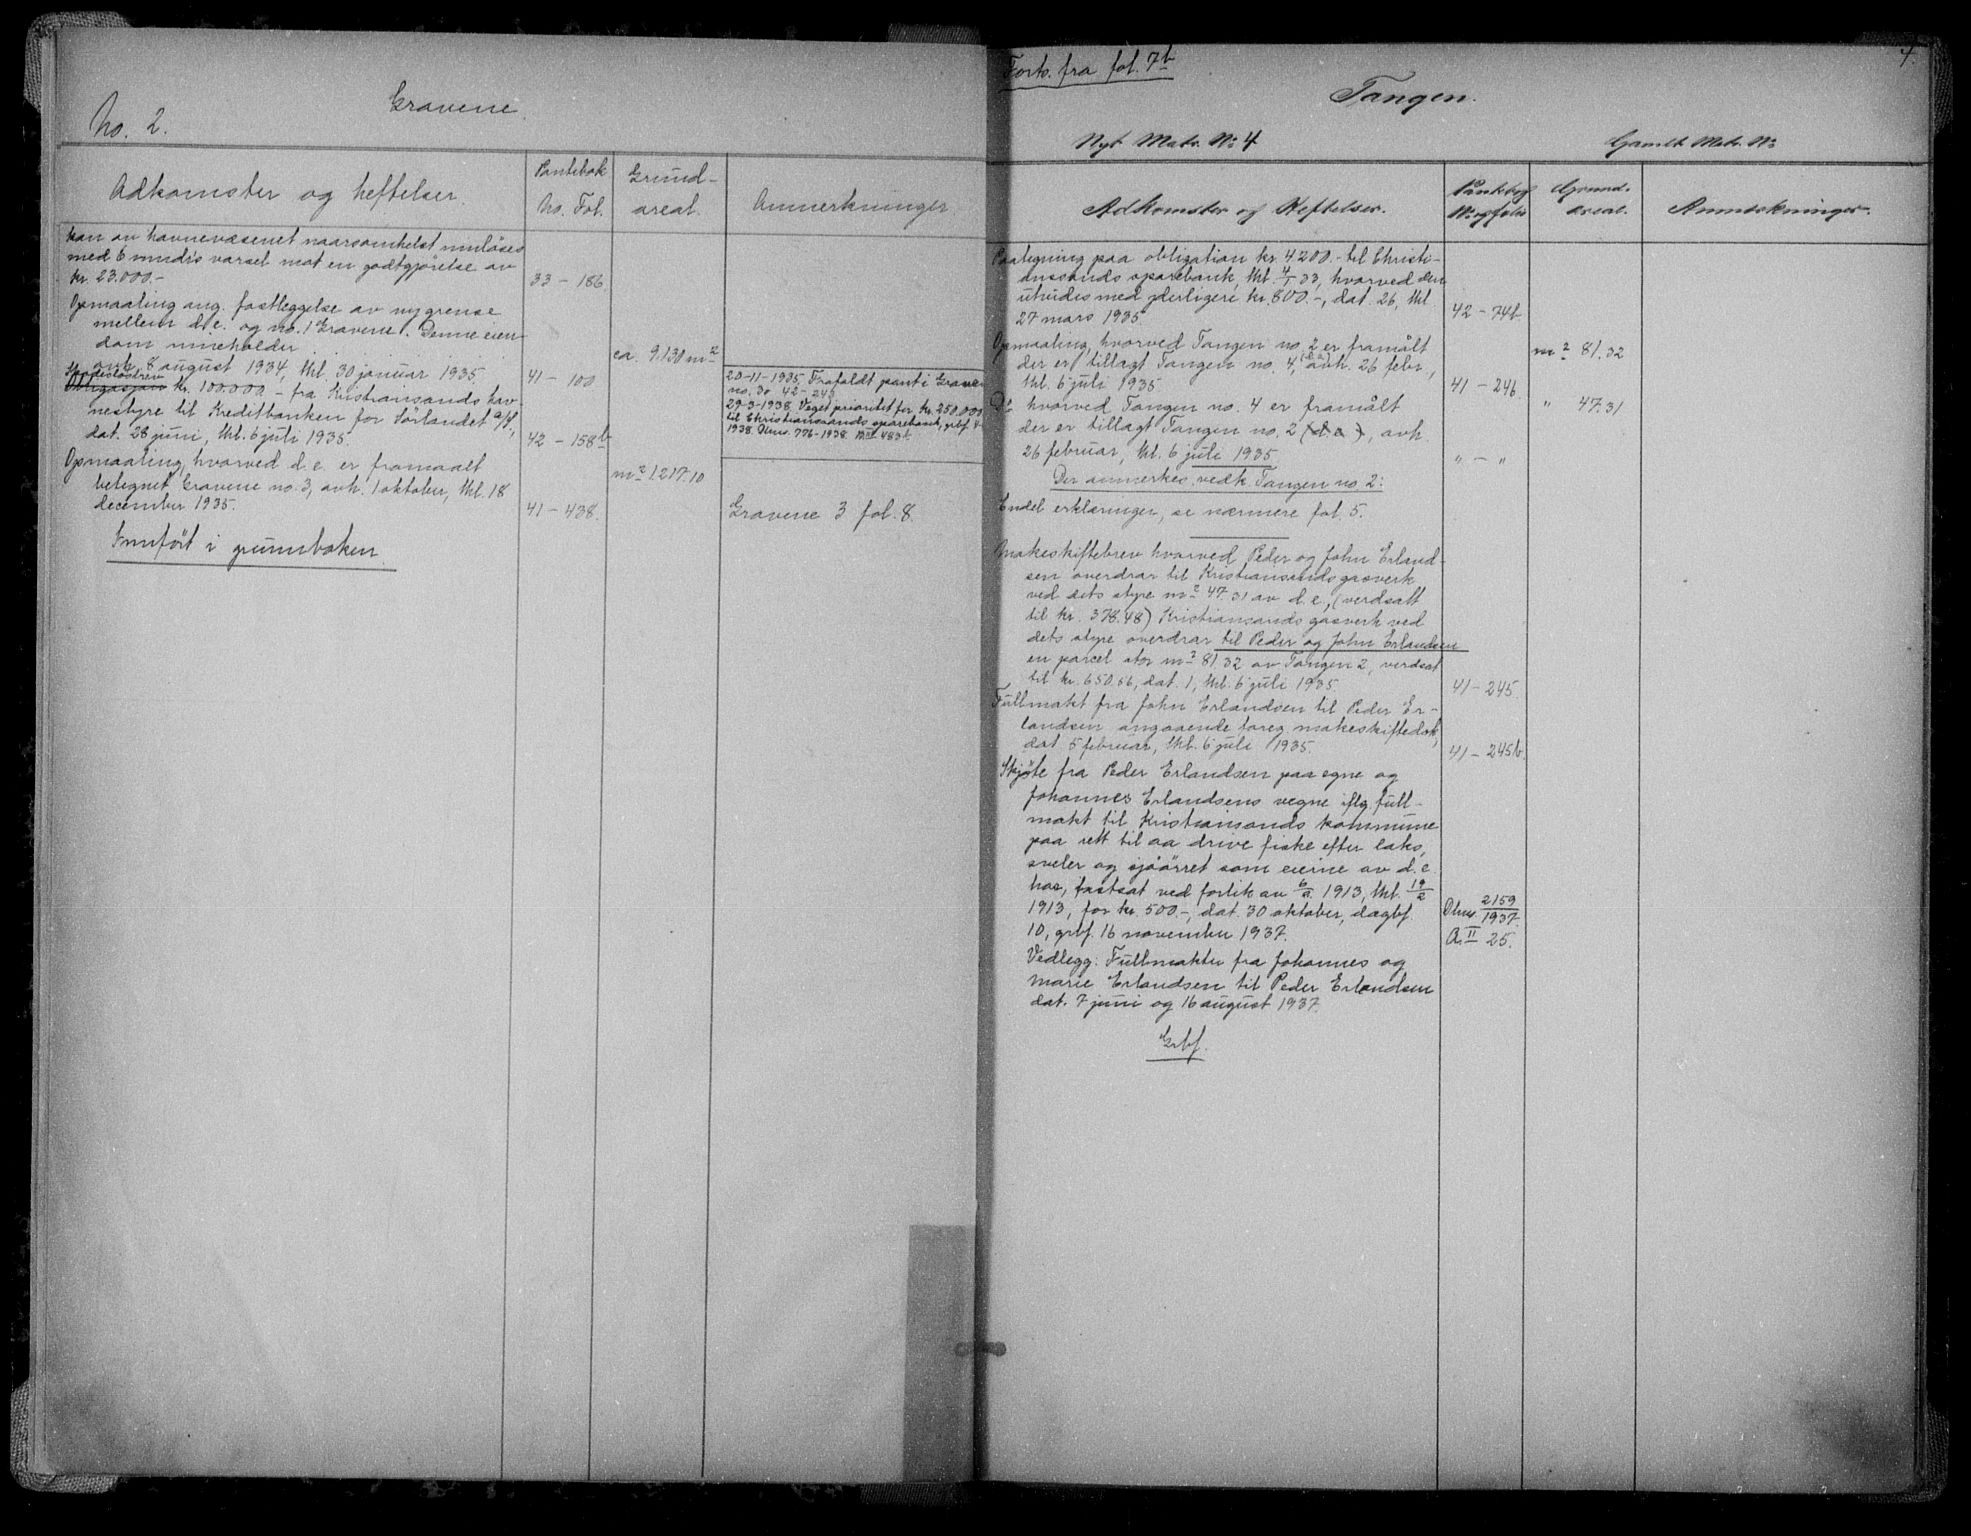 Gravene.
No. 2.
Adkomster og heftelser.
Pantebok
No. Fol.
Grund-
areal.
Anmerkninger.
kan av havnevæsenet naarsomhelst innlöses
med 6 mndrs varsel mot en godtgjörelse av
kr. 23.000.-
33 - 186.
Opmaaling ang. fastleggelse av ny grense
mellem d.e. og no. 1 Gravene. Denne eien-
dom inneholder
ca. 9.130 m²
avh. 8 august 1934, thl. 30 januar 1935.
41 - 100
Skadeslösbrev
Obligasjon kr. 100.000.- fra Kristiansands hav-
nestyre til Kreditbanken for Sörlandet a/s,
dat. 28 juni, thl. 6 juli 1935.
42 - 158b
20-11-1935. Frafaldt pant i Gravene
no. 3. 42 - 243
29-3-1938. Veget prioritet for kr. 250.000
til Christianssands sparebank, grbf.
1938. Dbnr. 776-1938. 483b
Opmaaling, hvorved d.e. er framaalt
betegnet Gravene no. 3, avh. 1 oktober, thl. 18
december 1935.
41 - 438.
m² 1217.10
Gravene 3 fol. 8.
Innfört i grunnboken.
Forts. fra fol. 7b
4.
Tangen.
Nyt Matr. No 4
Gamlt Matr. No
Adkomster og Heftelser.
Pantebog
No og folio
Grund-
areal.
Anmerkninger.
Paategning paa obligation kr. 4200.- til Christi-
anssands sparebank, thl. 4/1 33, hvorved den
utvides med yderligere kr. 800.-, dat. 26, thl.
27 mars 1935.
42 - 74b.
Opmaaling, hvorved Tangen no. 2 er framålt
der er tillagt Tangen no. 4, (d.e.) avh. 26 febr.,
thl. 6 juli 1935
41 - 246.
m² 81.32
Do hvorved Tangen no. 4 er framålt
der er tillagt Tangen no. 2 (d.e.), avh.
26 februar, thl. 6 juli 1935
" - "
" 47.31
Der anmerkes vedk. Tangen no 2:
Endel erklæringer, se nærmere fol. 5.
Makeskiftebrev hvorved Peder og John Erland-
sen overdrar til Kristiansands gasverk
ved dets styre m² 47.31 av d.e, (verdsatt
til kr. 378.48) Kristiansands gasverk ved
dets styre overdrar til Peder og John Erlandsen
en parcel stor m² 81.32 av Tangen 2, verdsat
til kr. 650.56, dat. 1, thl. 6 juli 1935
41 - 245.
Fullmakt fra John Erlandsen til Peder Er-
landsen angaaende foreg. makeskiftedok,
dat. 5 februar, thl. 6 juli 1935.
41 - 245b.
Skjöte fra Peder Erlandsen paa egne og
Johannes Erlandsens vegne iflg. full-
makt til Kristiansands kommune
paa rett til aa drive fiske efter laks,
sveler og sjöörret som eierne av d.e.
har, fastsat ved forlik av 1913, thl. 19/2
1913, for kr. 500.-, dat. 30 oktober, dagbf.
10, grbf. 16 november 1937.
Dbnr. 2159/1937.
A. II 25.
Vedlegg: Fullmakter fra Johannes og
Marie Erlandsen til Peder Erlandsen
dat. 7 juni og 16 august 1937.
Grbf.